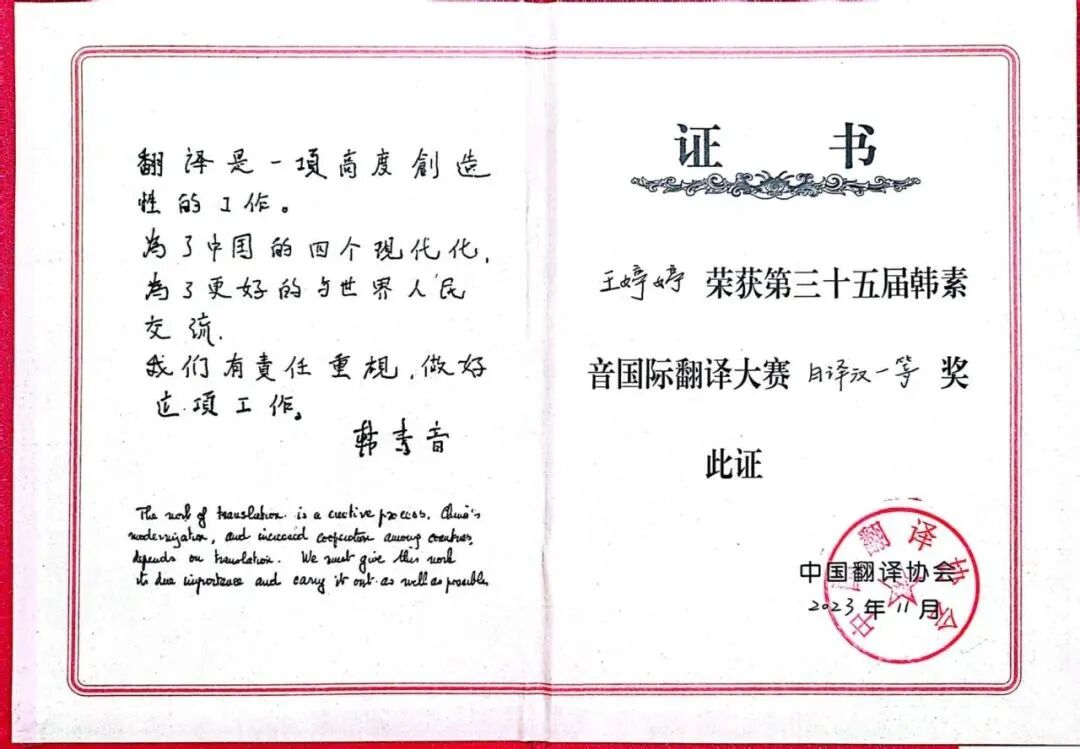 翻译是一項高度創造
性的工作。
為了中国的四个现代化,
為了更好的与世界人民
交流.
我们有責任重視,做好
这項工作。
韩素音
The work of translation is a creative process. China's
modernization, and increased cooperation among countries,
depends on translation. We must give this work
its due importance and carry it out as well as possible.
证书
王婷婷 荣获第三十五届韩素
音国际翻译大赛 日译汉一等 奖
此证
中国翻译协会
2023年11月
中国翻译协会